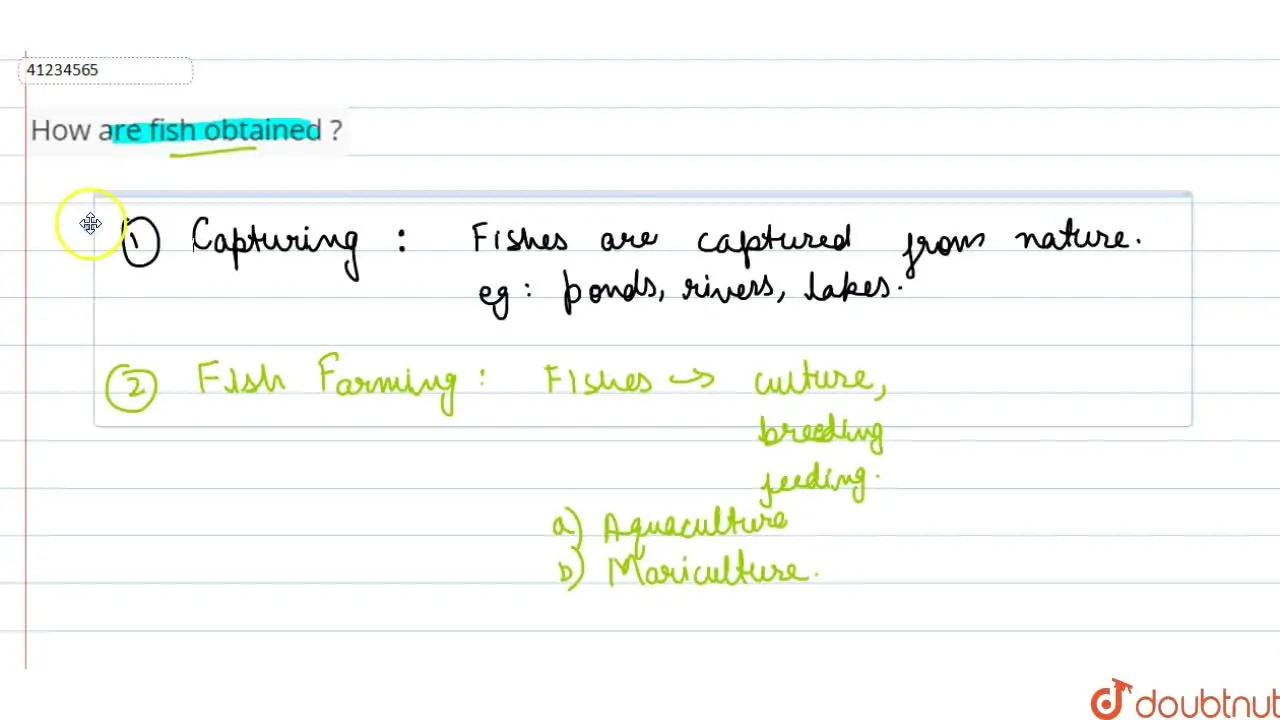 41234565
How are fish obtained ?
① Capturing : Fishes are captured from nature.
eg : ponds, rivers, lakes.
② Fish Farming : Fishes → culture,
breeding
feeding.
a) Aquaculture
b) Mariculture.
doubtnut